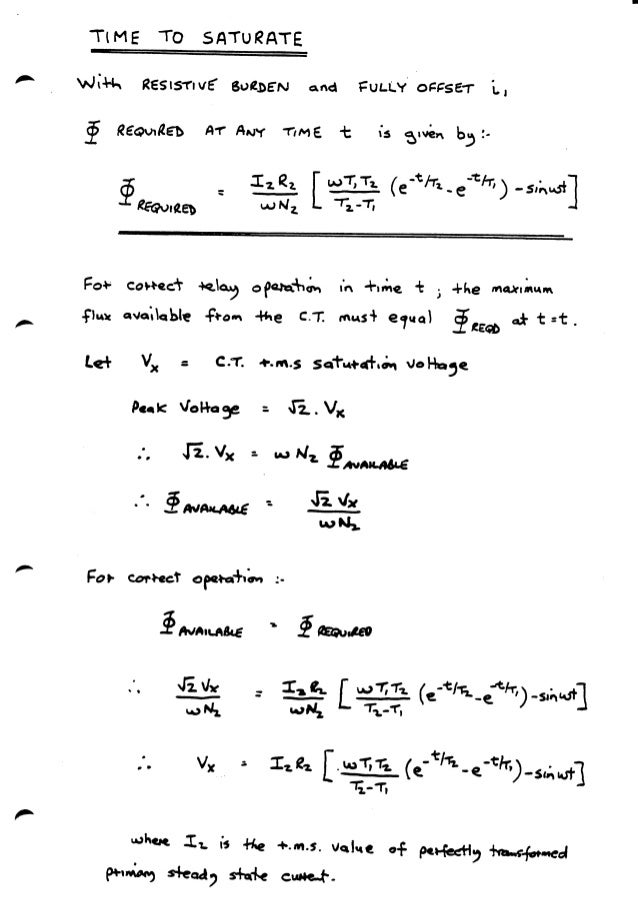 TIME TO SATURATE
With RESISTIVE BURDEN and FULLY OFFSET i,
Φ REQUIRED AT ANY TIME t is given by :-
Φ REQUIRED = I₂R₂/ωN₂ [ ωT₁T₂/T₂-T₁ (e^-t/T₂ - e^-t/T₁) - sinωt ]
For correct relay operation in time t ; the maximum
flux available from the C.T. must equal Φ REQD at t=t.
Let Vx = C.T. r.m.s saturation voltage
Peak Voltage = √2. Vx
∴ √2. Vx = ωN₂ Φ AVAILABLE
∴ Φ AVAILABLE = √2 Vx/ωN₂
For correct operation :-
Φ AVAILABLE = Φ REQUIRED
∴ √2 Vx/ωN₂ = I₂R₂/ωN₂ [ ωT₁T₂/T₂-T₁ (e^-t/T₂ - e^-t/T₁) - sinωt ]
∴ Vx = I₂R₂ [ ωT₁T₂/T₂-T₁ (e^-t/T₂ - e^-t/T₁) - sinωt ]
where I₂ is the r.m.s. value of perfectly transformed
primary steady state current.